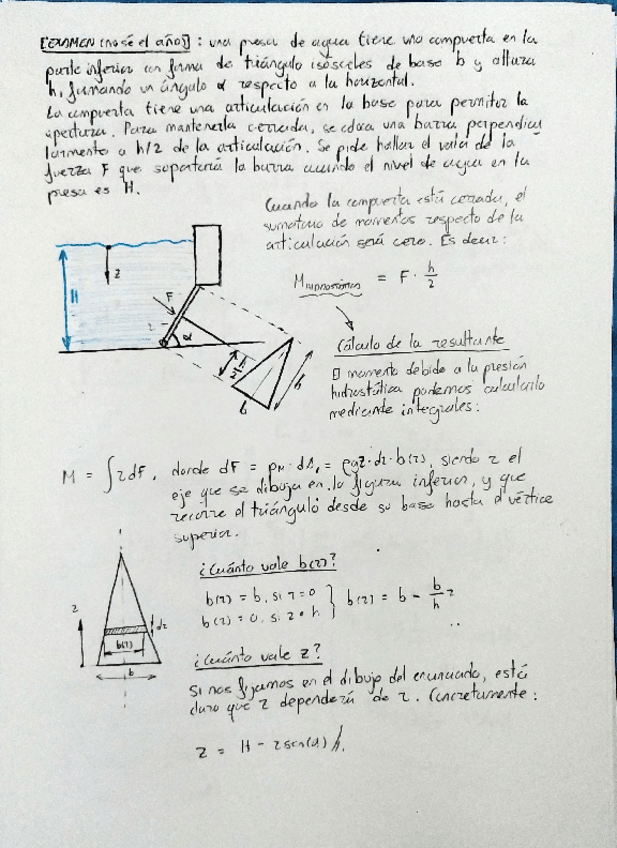 [EXAMEN (no sé el año)]: una presa de agua tiene una compuerta en la
parte inferior con forma de triángulo isósceles de base b y altura
h, formando un ángulo α respecto a la horizontal.
La compuerta tiene una articulación en la base para permitir la
apertura. Para mantenerla cerrada, se coloca una barra perpendicu
larmente a h/2 de la articulación. Se pide hallar el valor de la
fuerza F que soportaría la barra cuando el nivel de agua en la
presa es H.
Cuando la compuerta está cerrada, el
sumatorio de momentos respecto de la
articulación será cero. Es decir:
M = F · h/2
H
z
F
α
h/2
h
b
Cálculo de la resultante
El momento debido a la presión
hidrostática podemos calcularlo
mediante integrales:
M = ∫ z dF, donde dF = ρgz · dz · b(z), siendo z el
eje que se dibuja en la figura inferior, y que
recorre el triángulo desde su base hasta el vértice
superior.
¿Cuánto vale b(z)?
b(z) = b, si z = 0
b(z) = 0, si z = h
} b(z) = b - b/h z
z
dz
b(z)
b
¿Cuánto vale z?
Si nos fijamos en el dibujo del enunciado, está
claro que z dependerá de z. Concretamente:
z = H - z sen(α)